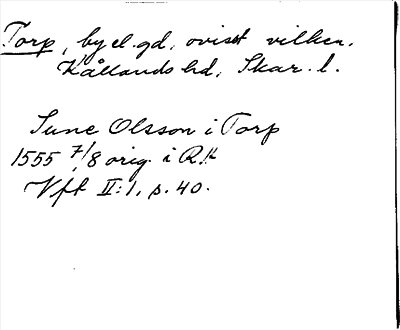 Torp, by el. gd, ovisst vilken.
Kållands hd, Skar. l.
Sune Olsson i Torp
1555 7/8 orig. i RA
Vft II:1, p. 40.